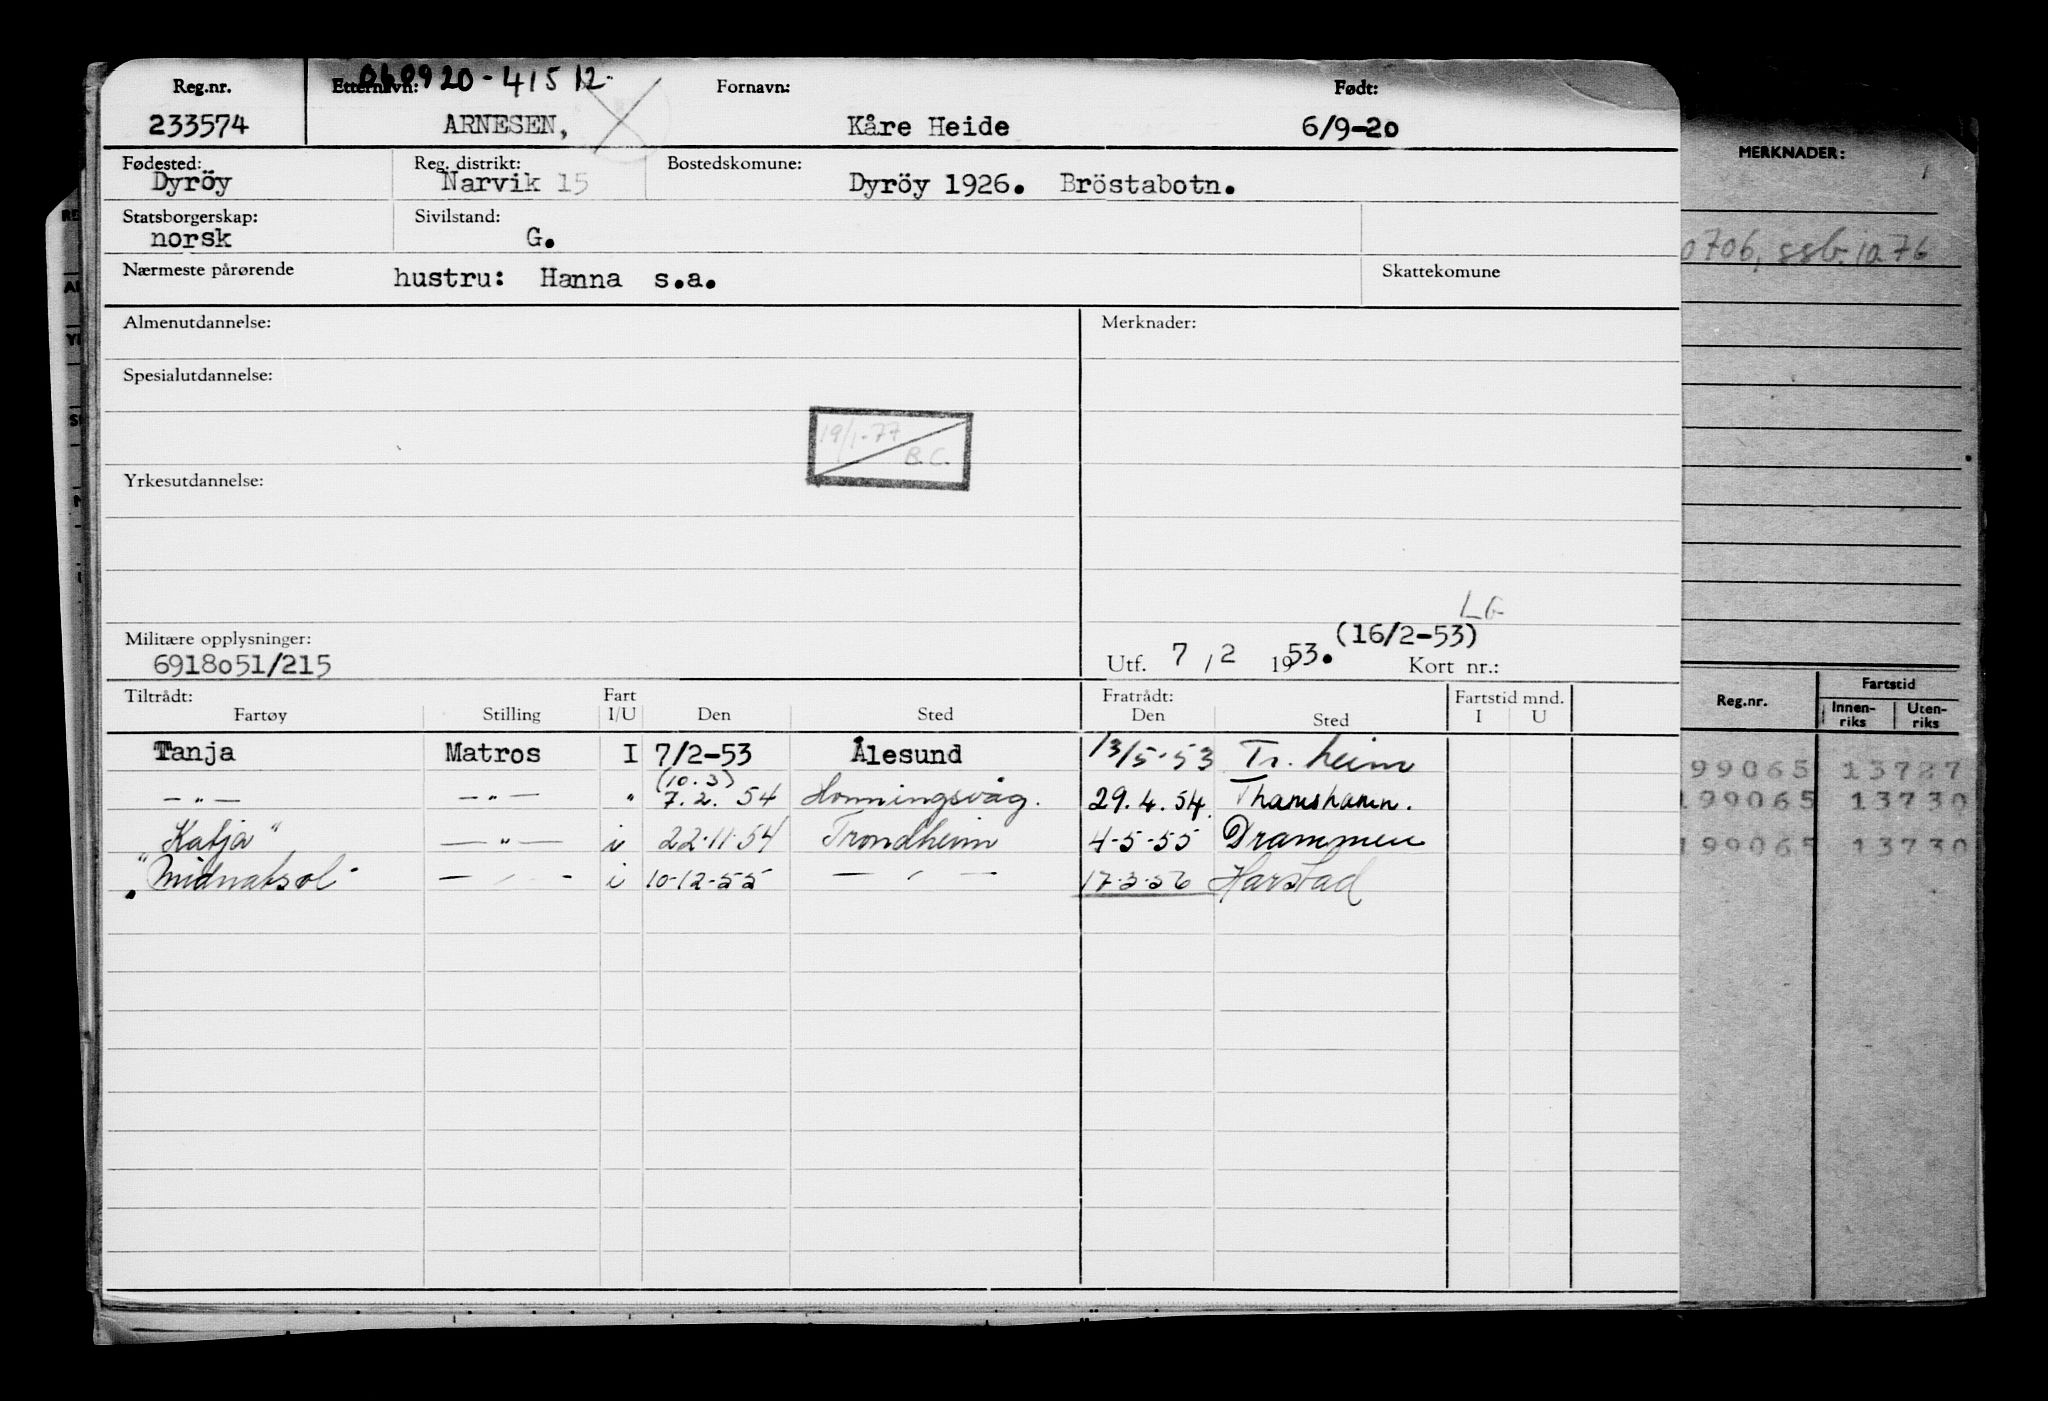 060920-41512.
Reg.nr. Etternavn: Fornavn: Født:
233574 ARNESEN, Kåre Heide 6/9-20
MERKNADER:
Fødested: Reg. distrikt: Bostedskomune:
Dyröy Narvik 15 Dyröy 1926. Bröstabotn.
Statsborgerskap: Sivilstand:
norsk G.
0706, ssb. 10.76
Nærmeste pårørende hustru: Hanna s.a. Skattekomune
Almenutdannelse: Merknader:
Spesialutdannelse:
19/1-77
B.C.
Yrkesutdannelse:
LG
Militære opplysninger: (16/2-53)
6918o51/215 Utf. 7 / 2 1953. Kort nr.:
Tiltrådt: Fart Fratrådt: Fartstid mnd.
Fartøy Stilling I/U Den Sted Den Sted I U
Reg.nr. Fartstid
Innen-riks Uten-riks
Tanja Matros I 7/2-53 Ålesund 13/5-53 Tr.heim
99065 13727
(10.3)
—"— —"— " 7.2. 54 Honningsvåg. 29.4.54. Thamshamn.
199065 13730
Katja" —"— i 22-11-54 Trondheim 4-5-55 Drammen
199065 13730
"Midnatsol" —"— i 10-12-55 —"— 17-3-56 Harstad